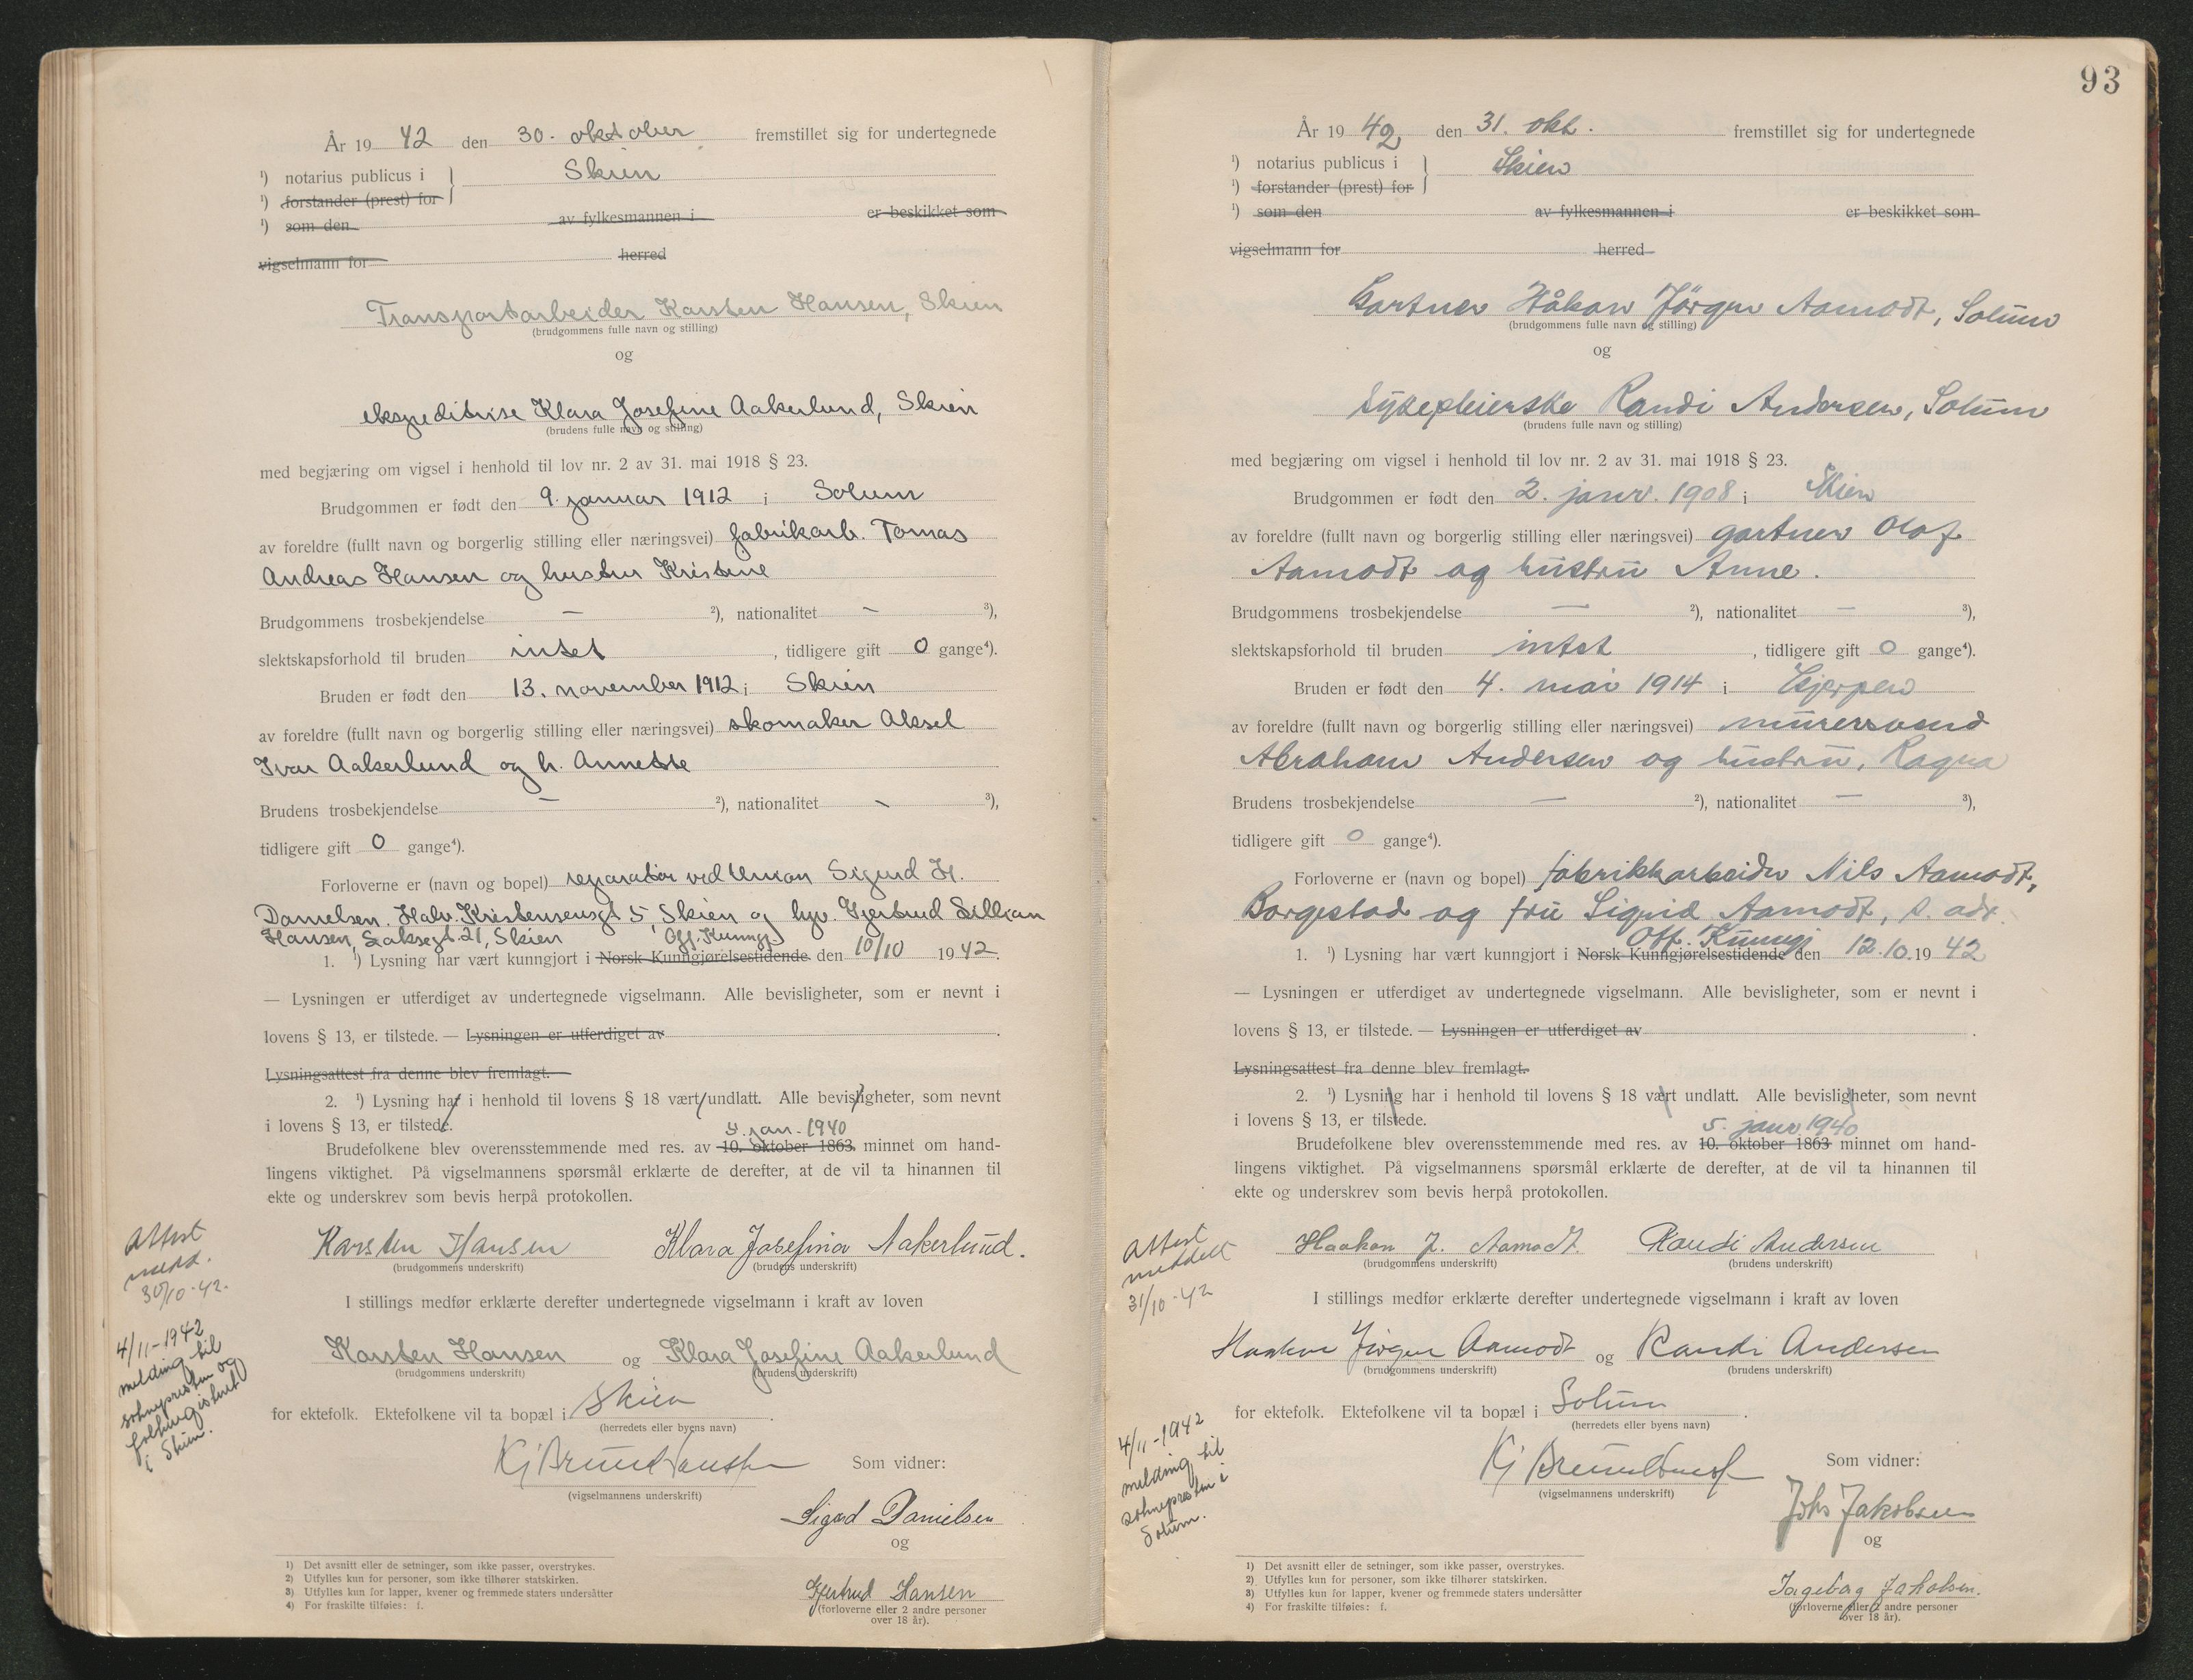 År 19 42 den 30. oktober fremstillet sig for undertegnede
¹) notarius publicus i } Skien
¹) forstander (prest) for
¹) som den av fylkesmannen i er beskikket som
vigselmann for herred
Transportarbeider Karsten Hansen, Skien
(brudgommens fulle navn og stilling)
og
ekspeditrise Klara Josefine Aakerlund, Skien
(brudens fulle navn og stilling)
med begjæring om vigsel i henhold til lov nr. 2 av 31. mai 1918 § 23.
Brudgommen er født den 9. januar 1912 i Solum
av foreldre (fullt navn og borgerlig stilling eller næringsvei) fabrikarb. Tomas
Andreas Hansen og hustru Kristine
Brudgommens trosbekjendelse — ²), nationalitet — ³),
slektskapsforhold til bruden intet, tidligere gift 0 gange⁴).
Bruden er født den 13. november 1912 i Skien
av foreldre (fullt navn og borgerlig stilling eller næringsvei) skomaker Aksel
Ivar Aakerlund og h. Annette
Brudens trosbekjendelse — ²), nationalitet — ³),
tidligere gift 0 gange⁴).
Forloverne er (navn og bopel) reparatør ved Union Sigurd H.
Danielsen, Halv. Kristensensgt 5, Skien og hpv. Gjertrud Lillian
Hansen, Saksegt. 21, Skien Off. Kunngj.
1. ¹) Lysning har vært kunngjort i Norsk Kunngjørelsestidende den 10/10 1942.
— Lysningen er utferdiget av undertegnede vigselmann. Alle bevisligheter, som er nevnt i
lovens § 13, er tilstede. — Lysningen er utferdiget av .
Lysningsattest fra denne blev fremlagt.
2. ¹) Lysning har i henhold til lovens § 18 vært undlatt. Alle bevisligheter, som nevnt
i lovens § 13, er tilstede.
5. jan. 1940
Brudefolkene blev overensstemmende med res. av 10. oktober 1863 minnet om hand-
lingens viktighet. På vigselmannens spørsmål erklærte de derefter, at de vil ta hinannen til
ekte og underskrev som bevis herpå protokollen.
Attest
medd.
30/10-42.
Karsten Hansen Klara Josefina Aakerlund.
(brudgommens underskrift) (brudens underskrift)
I stillings medfør erklærte derefter undertegnede vigselmann i kraft av loven
4/11-1942
melding til
soknepresten og
folkeregisteret
i Skien.
Karsten Hansen og Klara Josefine Aakerlund
(brudgommens underskrift) (brudens underskrift)
for ektefolk. Ektefolkene vil ta bopæl i Skien.
(herredets eller byens navn)
Som vidner:
(vigselmannens underskrift)
Sigurd Danielsen
og
Gjertrud Hansen
(forloverne eller 2 andre personer
over 18 år).
1) Det avsnitt eller de setninger, som ikke passer, overstrykes.
2) Utfylles kun for personer, som ikke tilhører statskirken.
3) Utfylles kun for lapper, kvener og fremmede staters undersåtter
4) For fraskilte tilføies: f.
93
År 19 42 den 31. okt. fremstillet sig for undertegnede
¹) notarius publicus i } Skien
¹) forstander (prest) for
¹) som den av fylkesmannen i er beskikket som
vigselmann for herred
Gartner Håkon Jörgen Aamodt, Solum
(brudgommens fulle navn og stilling)
og
Sykepleierske Randi Andersen, Solum
(brudens fulle navn og stilling)
med begjæring om vigsel i henhold til lov nr. 2 av 31. mai 1918 § 23.
Brudgommen er født den 2. janr. 1908 i Skien
av foreldre (fullt navn og borgerlig stilling eller næringsvei) gartner Olaf
Aamodt og hustru Anne.
Brudgommens trosbekjendelse — ²), nationalitet — ³),
slektskapsforhold til bruden intet, tidligere gift 0 gange⁴).
Bruden er født den 4. mai 1914 i Gjerpen
av foreldre (fullt navn og borgerlig stilling eller næringsvei) murersvend
Abraham Andersen og hustru, Ragna
Brudens trosbekjendelse — ²), nationalitet — ³),
tidligere gift 0 gange⁴).
Forloverne er (navn og bopel) fabrikkarbeider Nils Aamodt,
Borgestad og fru Sigrid Aamodt, s. adr.
Off. Kunngj
1. ¹) Lysning har vært kunngjort i Norsk Kunngjørelsestidende den 12.10.19 42
— Lysningen er utferdiget av undertegnede vigselmann. Alle bevisligheter, som er nevnt i
lovens § 13, er tilstede. — Lysningen er utferdiget av .
Lysningsattest fra denne blev fremlagt.
2. ¹) Lysning har i henhold til lovens § 18 vært undlatt. Alle bevisligheter, som nevnt
i lovens § 13, er tilstede.
5. janr 1940
Brudefolkene blev overensstemmende med res. av 10. oktober 1863 minnet om hand-
lingens viktighet. På vigselmannens spørsmål erklærte de derefter, at de vil ta hinannen til
ekte og underskrev som bevis herpå protokollen.
Attest
meddelt
31/10-42
Haakon J. Aamodt Randi Andersen
(brudgommens underskrift) (brudens underskrift)
I stillings medfør erklærte derefter undertegnede vigselmann i kraft av loven
Haakon Jörgen Aamodt og Randi Andersen
(brudgommens underskrift) (brudens underskrift)
for ektefolk. Ektefolkene vil ta bopæl i Solum.
(herredets eller byens navn)
4/11-1942
melding til
soknepresten i
Solum.
Som vidner:
(vigselmannens underskrift)
Johs Jakobsen
og
Ingeborg Jakobsen.
(forloverne eller 2 andre personer
over 18 år).
1) Det avsnitt eller de setninger, som ikke passer, overstrykes.
2) Utfylles kun for personer, som ikke tilhører statskirken.
3) Utfylles kun for lapper, kvener og fremmede staters undersåtter
4) For fraskilte tilføies: f.